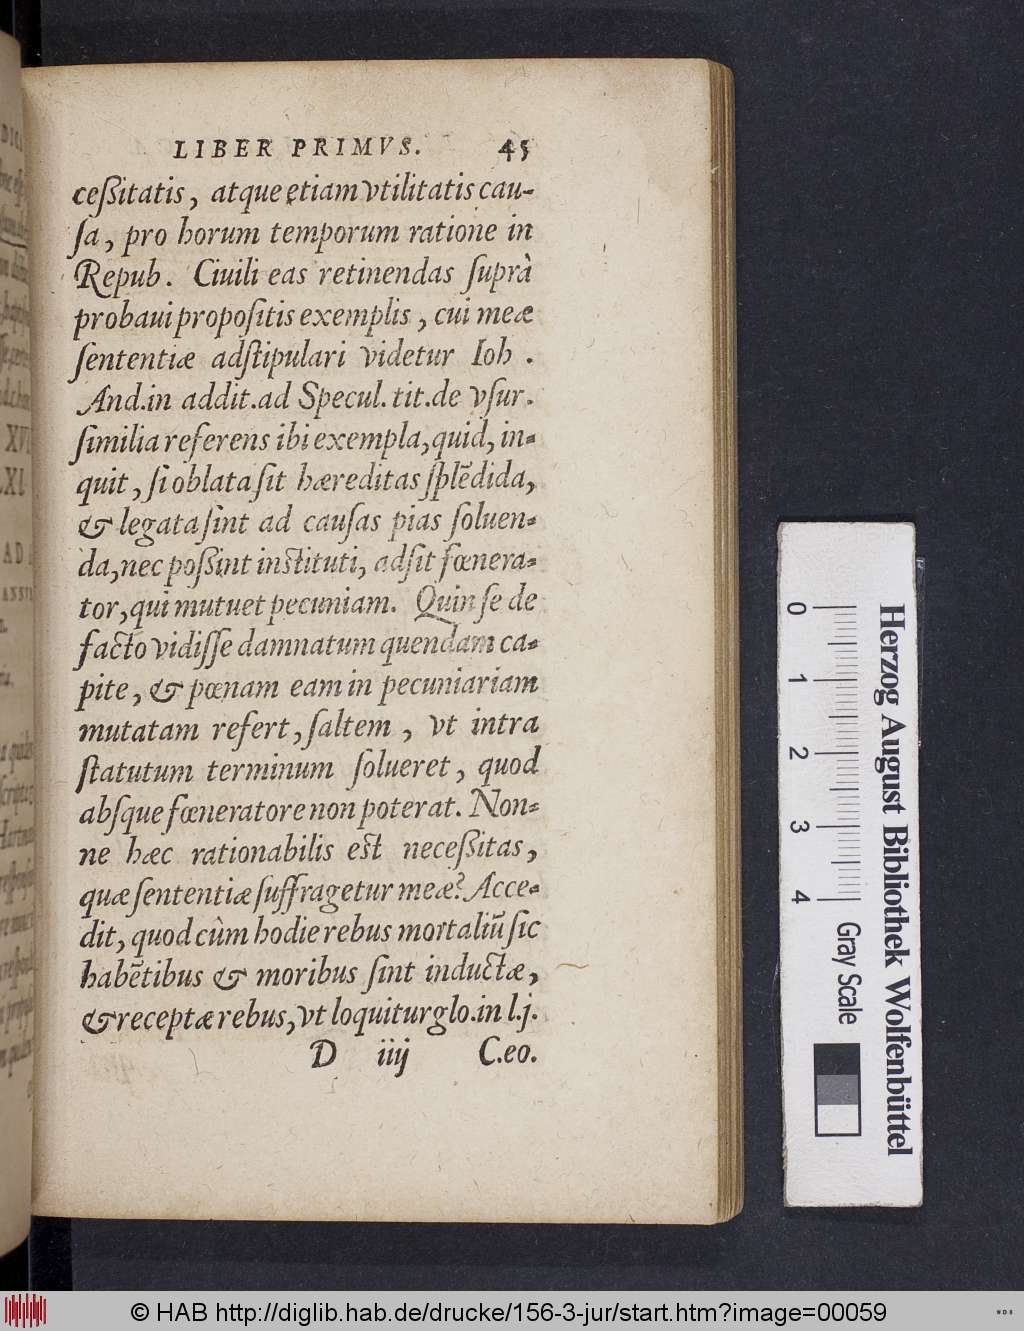 LIBER PRIMVS. 45
ceßitatis, atque etiam vtilitatis cau-
ſa, pro horum temporum ratione in
Repub. Ciuili eas retinendas ſuprà
probaui propoſitis exemplis, cui meæ
ſententiæ adſtipulari videtur Ioh.
And.in addit.ad Specul. tit.de vſur.
ſimilia referens ibi exempla, quid, in-
quit, ſi oblata ſit hæreditas ſplẽdida,
& legata ſint ad cauſas pias ſoluen-
da, nec poßint inſtituti, adſit fœnera-
tor, qui mutuet pecuniam. Quin ſe de
facto vidiſſe damnatum quendam ca-
pite, & pœnam eam in pecuniariam
mutatam refert, ſaltem, vt intra
ſtatutum terminum ſolueret, quod
abſque fœneratore non poterat. Non-
ne hæc rationabilis eſt neceßitas,
quæ ſententiæ ſuffragetur meæ? Acce-
dit, quod cùm hodie rebus mortaliũ ſic
habẽtibus & moribus ſint inductæ,
& receptæ rebus, vt loquitur glo.in l.j.
D iiij C.eo.
Herzog August Bibliothek Wolfenbüttel
0 1 2 3 4 Gray Scale
© HAB http://diglib.hab.de/drucke/156-3-jur/start.htm?image=00059